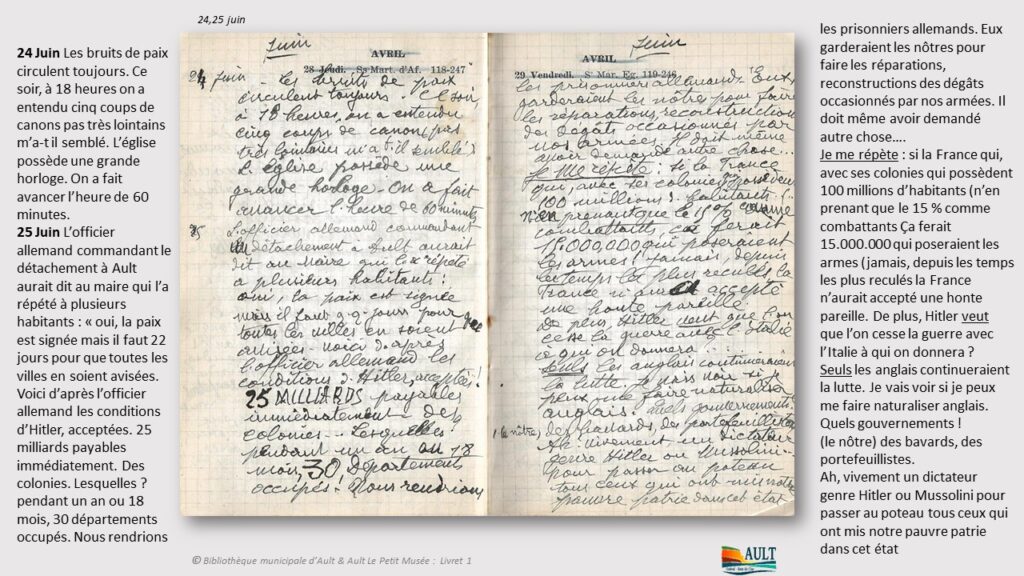 24,25 juin
24 Juin Les bruits de paix
circulent toujours. Ce
soir, à 18 heures on a
entendu cinq coups de
canons pas très lointains
m’a-t il semblé. L’église
possède une grande
horloge. On a fait
avancer l’heure de 60
minutes.
25 Juin L’officier
allemand commandant le
détachement à Ault
aurait dit au maire qui l’a
répété à plusieurs
habitants : « oui, la paix
est signée mais il faut 22
jours pour que toutes les
villes en soient avisées.
Voici d’après l’officier
allemand les conditions
d’Hitler, acceptées. 25
milliards payables
immédiatement. Des
colonies. Lesquelles ?
pendant un an ou 18
mois, 30 départements
occupés. Nous rendrions
Juin
AVRIL
28 Jeudi. Ss Mart. d'Af. 118-247
24 Juin - Les bruits de paix
circulent toujours. Ce soir,
à 18 heures, on a entendu
cinq coups de canon, pas
très lointains m'a t'il semblé !
L'Eglise possède une
grande horloge. On a fait
avancer l'heure de 60 minutes
25 L'officier allemand commandant
le détachement à Ault aurait
dit au Maire qui l'a répété
à plusieurs habitants :
oui, la paix est signée
mais il faut jours pour que
toutes les villes en soient
avisées. Voici d'après
l'officier allemand les
conditions d'Hitler, acceptées !
25 MILLIARDS payables
immédiatement - des
colonies.. Lesquelles ?
pendant un an ou 18
mois, 30 départements
occupés ! Nous rendrions
Juin
AVRIL
29 Vendredi. Se Mar. Eg. 119-246
les prisonniers allemands. Eux
garderaient les nôtres pour faire
les réparations, reconstructions
des dégâts occasionnés par
nos armées. Il doit même
avoir demandé autre chose...
Je me répète : si la France
qui, avec ses colonies possèdent
100 millions d'habitants
n'en prenant que le 15% comme
combattants, ça ferait
15.000.000 qui poseraient
les armes ! jamais, depuis
les temps les plus reculés la
France n'aurait accepté
une honte pareille.
De plus, Hitler veut que l'on
cesse la guerre avec l'Italie
à qui on donnera ?
Seuls les anglais continueraient
la lutte. Je vais voir si je
peux me faire naturaliser
anglais. Quels gouvernements !
(le nôtre) des bavards, des portefeuillistes
Ah, vivement un dictateur
genre Hitler ou Mussolini
pour passer au poteau
tous ceux qui ont mis notre
pauvre patrie dans cet état
les prisonniers allemands. Eux
garderaient les nôtres pour
faire les réparations,
reconstructions des dégâts
occasionnés par nos armées. Il
doit même avoir demandé
autre chose….
Je me répète : si la France qui,
avec ses colonies qui possèdent
100 millions d’habitants (n’en
prenant que le 15 % comme
combattants Ça ferait
15.000.000 qui poseraient les
armes (jamais, depuis les temps
les plus reculés la France
n’aurait accepté une honte
pareille. De plus, Hitler veut
que l’on cesse la guerre avec
l’Italie à qui on donnera ?
Seuls les anglais continueraient
la lutte. Je vais voir si je peux
me faire naturaliser anglais.
Quels gouvernements !
(le nôtre) des bavards, des
portefeuillistes.
Ah, vivement un dictateur
genre Hitler ou Mussolini pour
passer au poteau tous ceux qui
ont mis notre pauvre patrie
dans cet état
© Bibliothèque municipale d’Ault & Ault Le Petit Musée : Livret 1
AULT